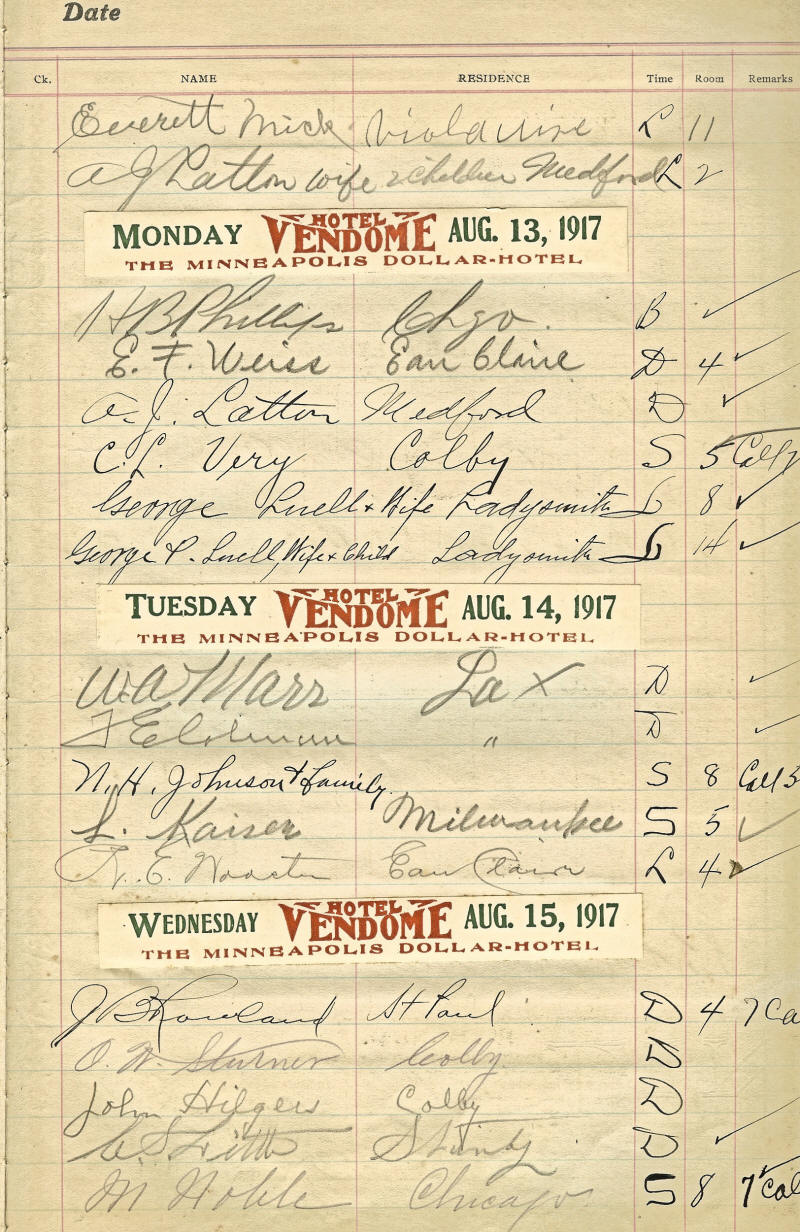 Date
Ck. NAME RESIDENCE Time Room Remarks
Everett Mick Viola Wisc L 11
A J Latton wife 2 children Medford L 2
MONDAY HOTEL VENDOME AUG. 13, 1917
THE MINNEAPOLIS DOLLAR-HOTEL
H B Phillips Chgo. B ✓
E. F. Weiss Eau Claire D 4 ✓
A. J. Latton Medford D ✓
C. L. Very Colby S 5 Call
George Luell & Wife Ladysmith L 8 ✓
George P. Luell, Wife & Child Ladysmith L 14 ✓
TUESDAY HOTEL VENDOME AUG. 14, 1917
THE MINNEAPOLIS DOLLAR-HOTEL
W A Marr La X D ✓
F E " D ✓
N. H. Johnson & family S 8 Call 5
L. Kaiser Milwaukee S 5 ✓
E. Wooster Eau Claire L 4 ✓
WEDNESDAY HOTEL VENDOME AUG. 15, 1917
THE MINNEAPOLIS DOLLAR-HOTEL
J B Rowland St Paul D 4 7 Ca
O. W. Sturner Colby D
John Hilgers Colby D
D ✓
M Noble Chicago S 8 7 Cal